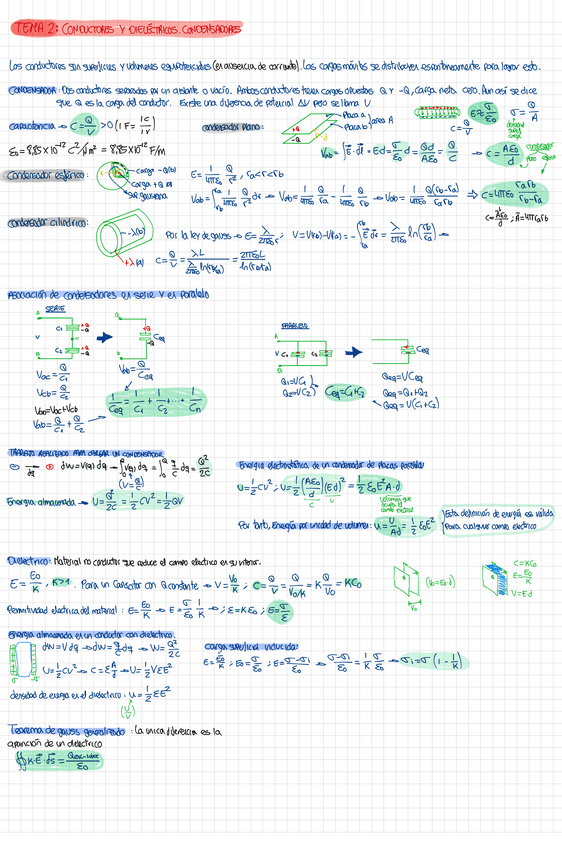 TEMA 2: CONDUCTORES Y DIELÉCTRICOS. CONDENSADORES
Los conductores son superficies y volumenes equipotenciales (en ausencia de corriente). Las cargas móviles se distribuyen espontáneamente para lograr esto.
CONDENSADOR: Dos conductores separados por un aislante o vacío. Ambos conductores tienen cargas opuestas Q y -Q, carga neta cero. Aun así se dice
que Q es la carga del conductor. Existe una diferencia de potencial ΔV pero se llama V
capacitancia → C = Q/V > 0 (1F = 1C/1V)
condensador plano:
Placa a
Placa b
área A
C = Q/V
E = σ/ε0
σ = Q/A
ε0 = 8,85×10^-12 C²/N·m² = 8,85×10^-12 F/m
Vab = ∫E·dl = Ed = σ/ε0 d = Qd/Aε0 = Q/C → C = Aε0/d
Condensador esférico:
carga -Q(b)
carga +Q (a)
sup. gaussiana
E = 1/4πε0 Q/r², ra<r<rb
Vab = 1/4πε0 Q/ra - 1/4πε0 Q/rb → Vab = 1/4πε0 Q(rb-ra)/rarb → C = 4πε0 rarb/rb-ra
condensador cilíndrico:
-λ(b)
+λ(a)
Por la ley de gauss → E = λ/2πε0r ; V = V(rb)-V(ra) = -∫E dr = λ/2πε0 ln(rb/ra)
C = Q/V = λL / λ/2πε0 ln(rb/ra) = 2πε0L / ln(rb/ra)
Asociación de condensadores en serie y en paralelo
SERIE
PARALELO
Vac = Q/C1
Vcb = Q/C2
Vab = Vac+Vcb
Vab = Q/C1 + Q/C2
Vab = Q/Ceq
1/Ceq = 1/C1 + 1/C2 + ... + 1/Cn
Q1=V(C1)
Q2=V(C2)
Ceq=C1+C2
Qeq = VCeq
Qeq = Q1+Q2
Qeq = V(C1+C2)
TRABAJO REALIZADO PARA CARGAR UN CONDENSADOR
dW = V(q) dq → ∫V(q) dq = ∫q/C dq = Q²/2C
(V=Q/C)
Energía almacenada → U = Q²/2C = 1/2 CV² = 1/2 QV
Energía electrostática de un condensador de placas paralelas
U = 1/2 CV² ; U = 1/2 (Aε0/d)(Ed)² = 1/2 ε0E²A·d
Por tanto, Energía por unidad de volumen: u = U/Ad = 1/2 ε0E²
Esta definición de energía es válida
Para cualquier campo electrico
Dielectrico: Material no conductor que reduce el campo electrico en su interior.
E = E0/K, K>1. Para un Capacitor con Q constante → V = V0/K ; C = Q/V = Q/V0/K = K Q/V0 = KC0
(V0=E0·d)
C=KC0
E=E0/K
V=Ed
Permitividad electrica del material: E = E0/K → E = σ/ε0 1/K → ; ε=Kε0 ; E = σ/ε
Energía almacenada en un conductor con dielectrico.
dW = V dq → dW = q/C dq → W = Q²/2C
U = 1/2 CV² → C = ε A/d → U = 1/2 VεE²
densidad de energía en el dielectrico: u = 1/2 εE²
(U/V)
Carga superficial inducida:
E = E0/K ; E0 = σ/ε0 ; E = σ-σi/ε0 → σ-σi/ε0 = 1/K σ/ε0 → σi = σ(1 - 1/K)
Teorema de gauss generalizado: La unica diferencia es la
aparición de un dielectrico
∯K·E·ds = Qenc-libre/ε0